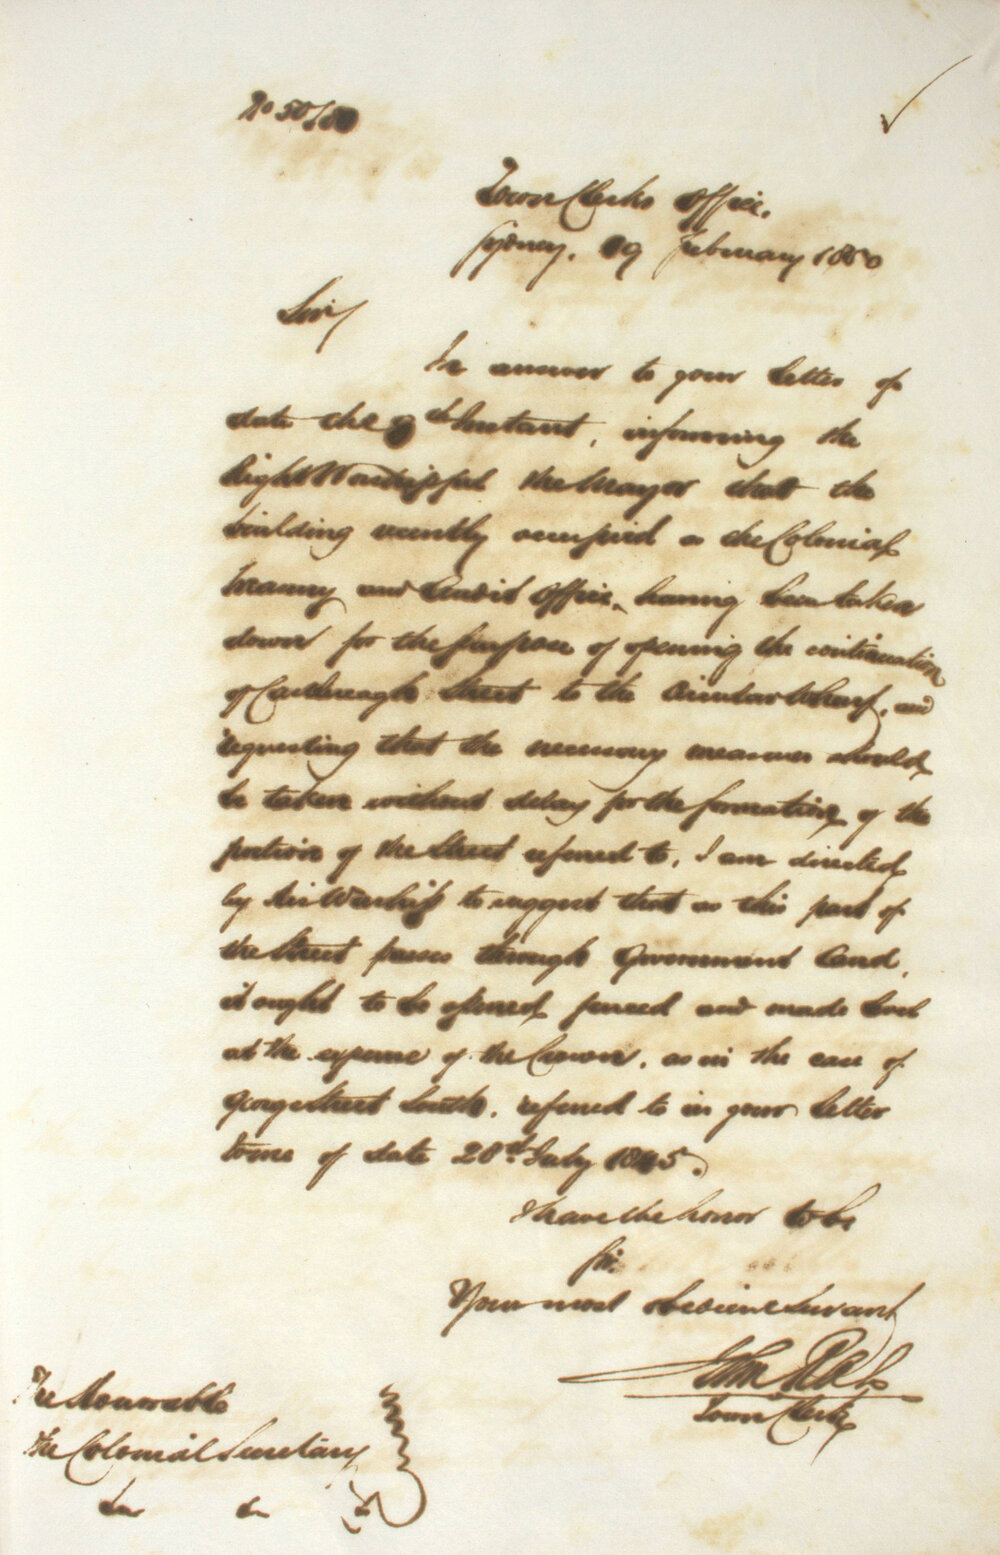 No 50/80
Town Clerks Office,
Sydney, 19 February 1850
Sir,
In answer to your letter of
date the 9th Instant, informing the
Right Worshipful the Mayor that the
building recently occupied as the Colonial
Treasury and Audit Office, having been taken
down for the purpose of opening the continuation
of Castlereagh Street to the Circular Wharf, and
requesting that the necessary measures should
be taken without delay for the formation of the
portion of the Street referred to, I am directed
by His Worship to suggest that as this part of
the Street passes through Government Land,
it ought to be opened fenced and made level
at the expense of the Crown, as in the case of
George Street South, referred to in your letter
to me of date 28th July 1845.
I have the honor to be
Sir,
Your most obedient Servant
John
Town Clerk
The Honorable
The Colonial Secretary